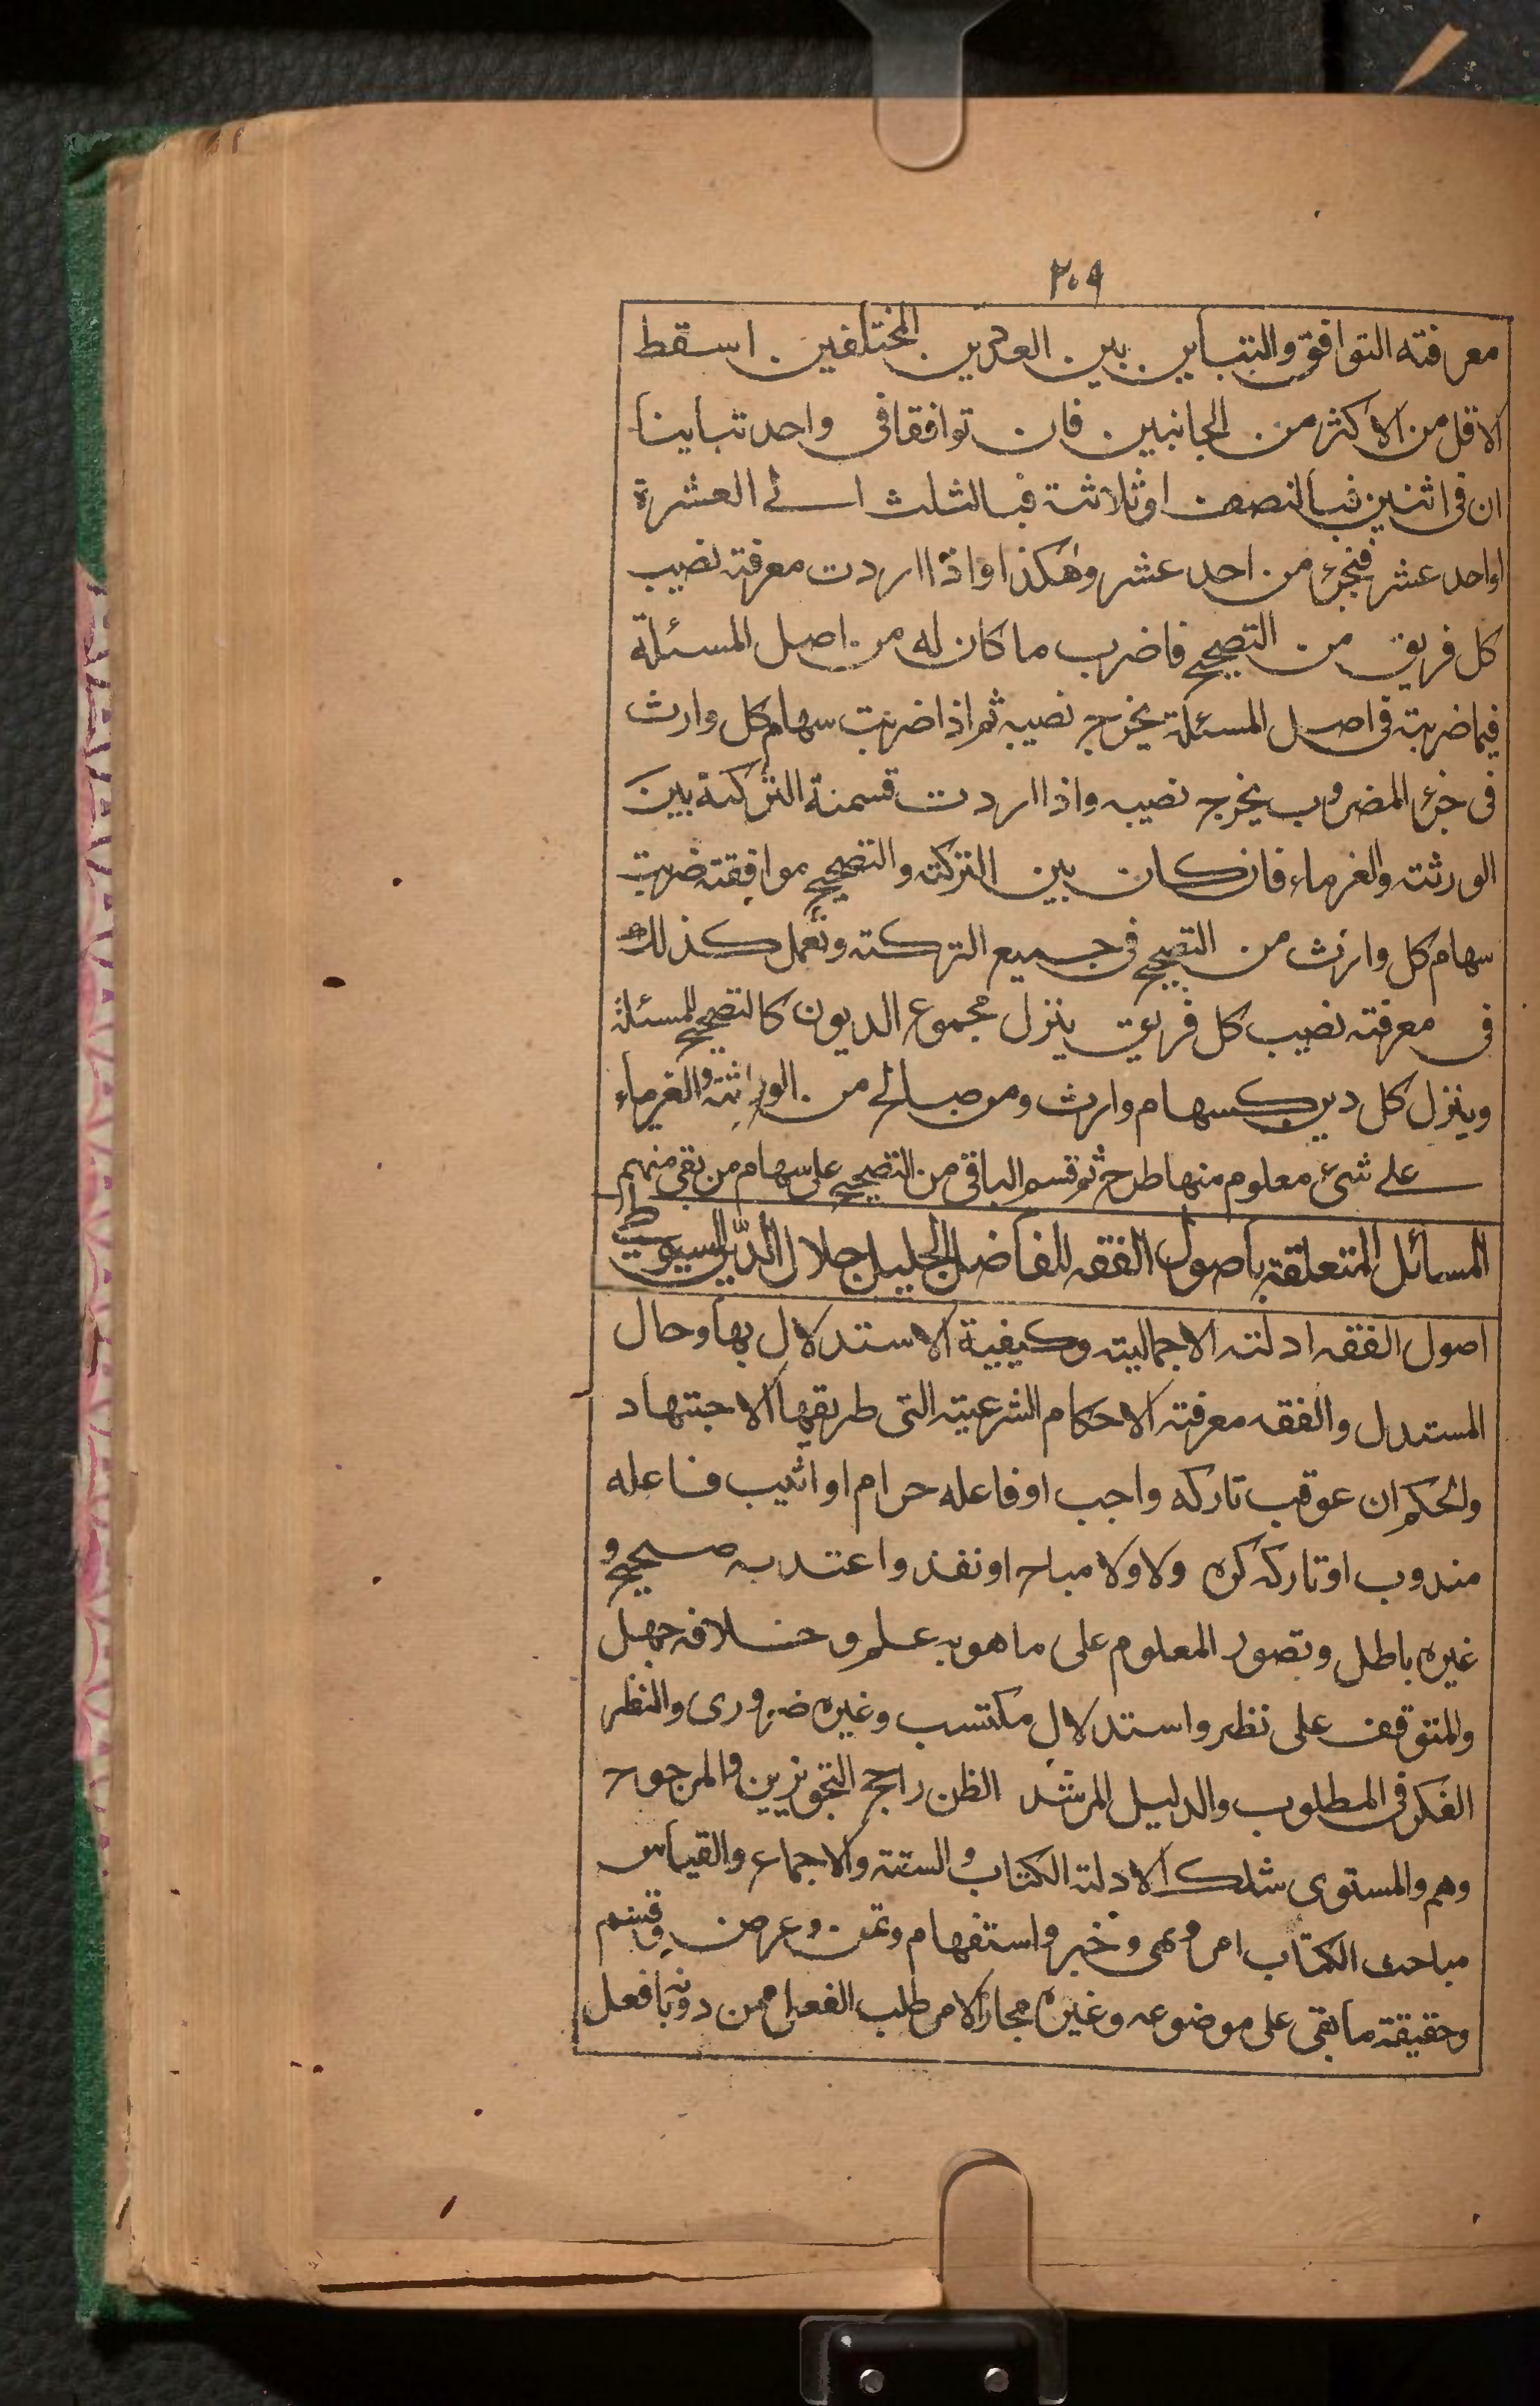 ٢٠٩
معرفته التوافق والتباين بين العددين المختلفين اسقط
الاقل من الاكثر من الجانبين فان توافقا فى واحد تباينا
ان فى اثنين فبالنصف او ثلاثة فبالثلث الے العشرة
او احد عشر فبجزء من احد عشر وهكذا واذا اردت معرفة نصيب
كل فريق من التصحيح فاضرب ما كان له من اصل المسئلة
فيما ضربته فى اصل المسئلة يخرج نصيبه ثم اذا ضربت سهام كل وارث
فى جزء المضروب يخرج نصيبه واذا اردت قسمة التركة بين
الورثته والغرماء فان كان بين التركته والتصحيح موافقته ضربت
سهام كل وارث من التصحيح فى جميع التركته وتعمل كذلك
فى معرفته نصيب كل فريق ينزل مجموع الديون كالتصحيح للمسئلة
وينزل كل دين كسهام وارث ومن صالح من الوراثته والغرماء
علے شىء معلوم منها طرح ثم قسم الباقى من التصحيح على سهام من بقى منهم
المسائل المتعلقة باصول الفقه للفاضل الجليل جلال الدّين السيوطى
اصول الفقه ادلته الاجماليته وكيفية الاستدلال بها وحال
المستدل والفقه معرفته الاحكام الشرعيته التى طريقها الاجتهاد
والحكم ان عوقب تاركه واجب اوفاعله حرام او اثيب فاعله
مندوب اوتاركه كره ولا ولا مباح او نفذ واعتد به صحيح و
غيره باطل وتصور المعلوم على ما هو به علم وخلافه جهل
والمتوقف على نظر واستدلال مكتسب وغيره ضرورى والنظر
الفكر فى المطلوب والدليل المرشد الظن راجح التجويزين والمرجوح
وهم والمستوى شك الادلة الكتاب والسنته والاجماع والقياس
مباحث الكتاب امر ونهى وخبر واستفهام وتمن وعرض وقسم
وحقيقة ما بقى على موضوعه وغيره مجاز الامر طلب الفعل ممن دونه بافعل